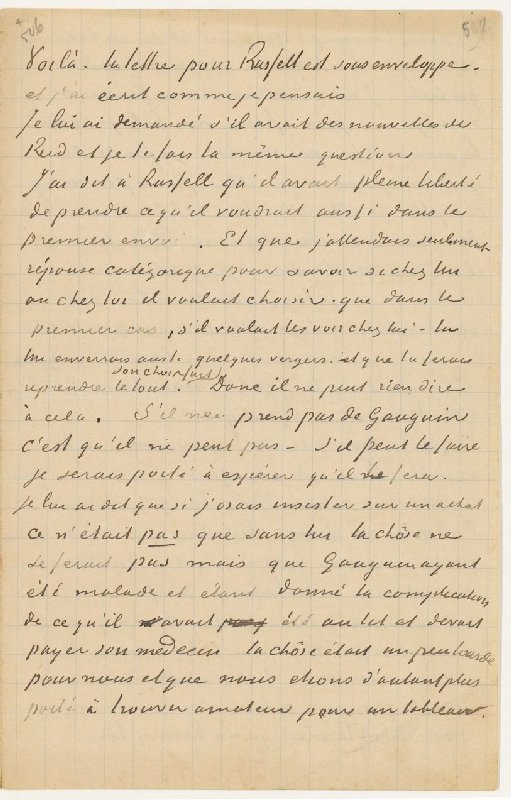 506
507
Voilà – la lettre pour Russell est sous enveloppe –
et j'ai écrit comme je pensais
Je lui ai demandé s'il avait des nouvelles de
Reid et je te fais la même question.
J'ai dit à Russell qu'il avait pleine liberté
de prendre ce qu'il voudrait aussi dans le
premier envoi. Et que j'attendais seulement
réponse catégorique pour savoir si chez lui
ou chez toi il voulait choisir. que dans le
premier cas, s'il voulait les voir chez lui – tu
lui enverrais aussi quelques vergers. et que tu ferais
son choix fait
reprendre le tout. Donc il ne peut rien dire
à cela. S'il n'en prend pas de Gauguin
c'est qu'il ne peut pas – S'il peut le faire
je serais porté à espérer qu'il le fera.
je lui ai dit que si j'osais insister sur un achat
ce n'était pas que sans lui la chôse ne
se ferait pas mais que Gauguin ayant
été malade et étant donné la complication
de ce qu'il avait été au lit et devait
payer son médecin la chôse était un peu lourde
pour nous et que nous étions d'autant plus
porté à trouver amateur pour un tableau.